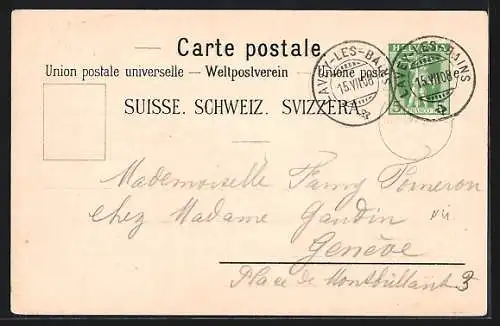 Carte postale.
Union postale universelle. – Weltpostverein. – Unione postale
SUISSE. SCHWEIZ. SVIZZERA.
HELVETIA
5
LAVEY-LES-BAINS
15.VII.08
LAVEY-LES-BAINS
15.VII.08
Mademoiselle Fanny Pomeron
chez Madame Gaudin
Genève
Place de Montbrillant 3